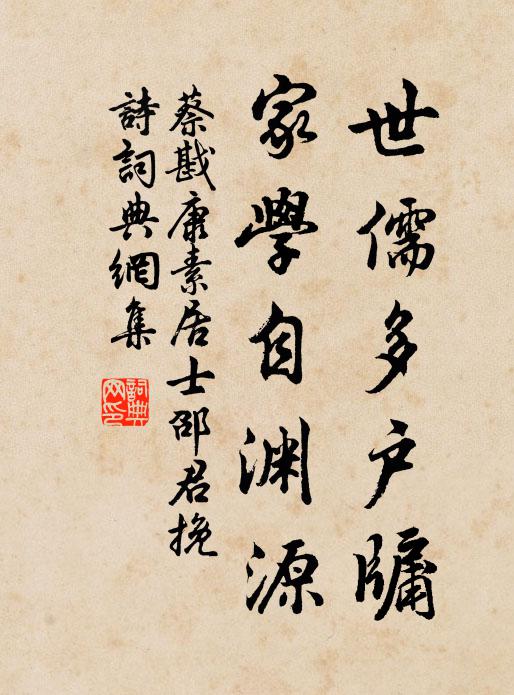 世儒多户牖
家學自渊源
蔡戡康素居士邵君挽
詩詞典網集
詞典
网印